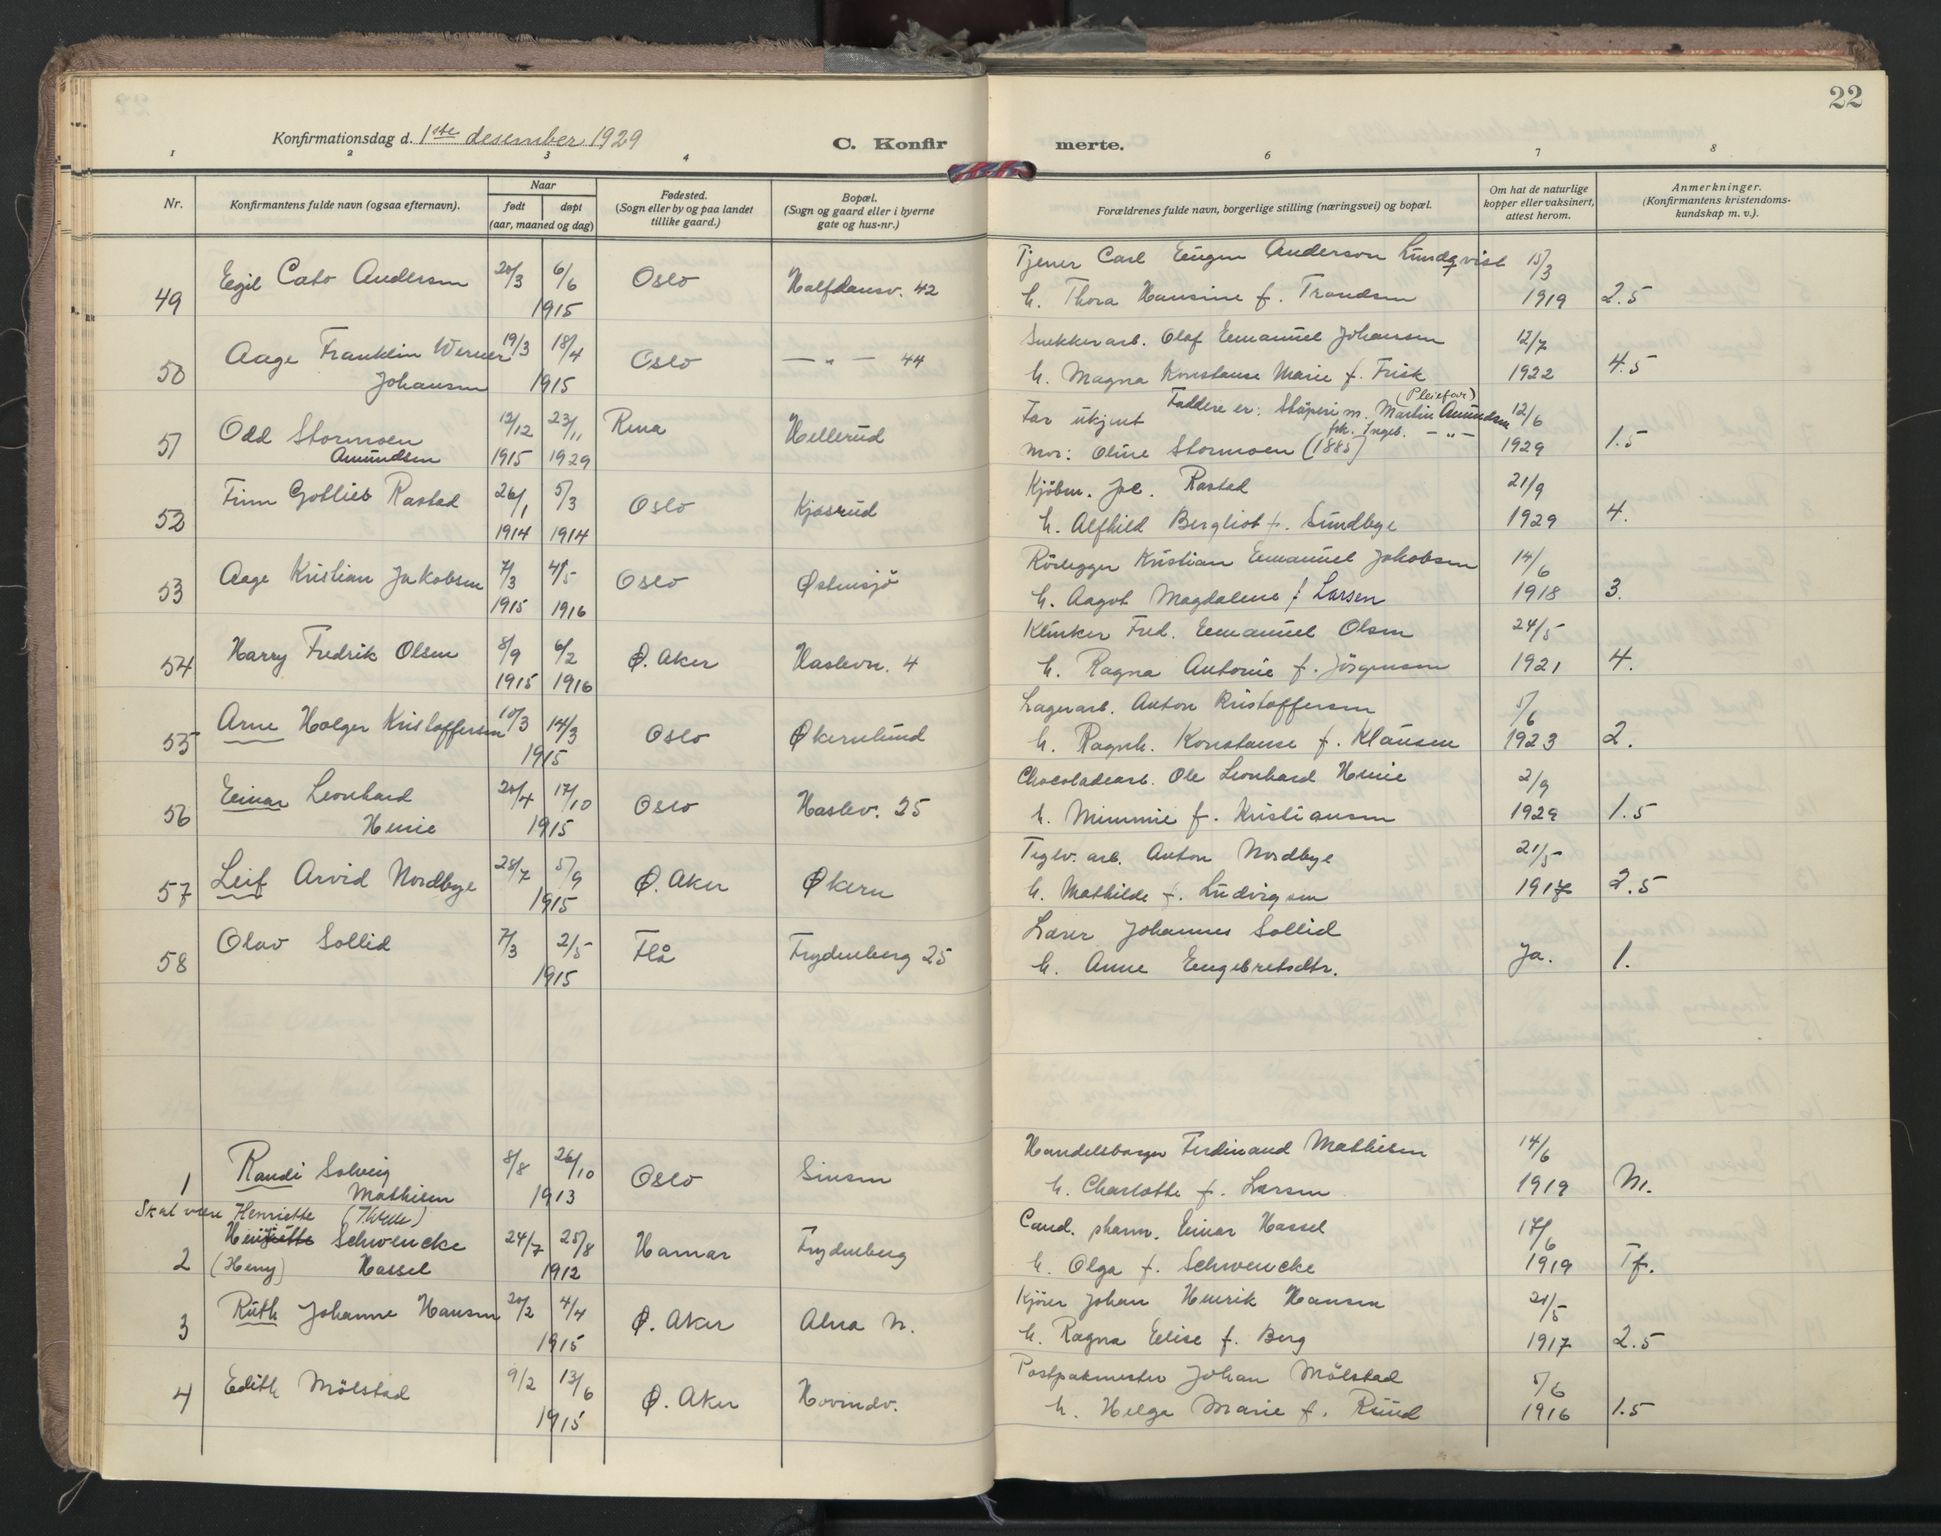 22
Konfirmationsdag d. 1ste desember 1929
C. Konfirmerte.
1 2 3 4 6 7 8
Nr.
Konfirmantens fulde navn (ogsaa efternavn).
Naar
født døpt
(aar, maaned og dag)
Fødested.
(Sogn eller by og paa landet
tillike gaard.)
Bopæl.
(Sogn og gaard eller i byerne
gate og hus-nr.)
Forældrenes fulde navn, borgerlige stilling (næringsvei) og bopæl.
Om hat de naturlige
kopper eller vaksinert,
attest herom.
Anmerkninger.
(Konfirmantens kristendoms-
kundskap m. v.).
49 Egil Cato Andersen 20/3 6/6 1915 Oslo Halfdansv. 42
Tjener Carl Eugen Anderson Lundqvist 15/3
h. Thora Hansine f. Trondsen 1919 2.5
50 Aage Franklin Werner 19/3 18/4 Oslo — " — 44
Johansen 1915
Snekkerarb. Olaf Emanuel Johansen 12/7
h. Magna Konstanse Marie f. Frisk 1922 4.5
51 Odd Stormoen 12/12 23/11 Rena Hellerud
Amundsen 1915 1929
Far ukjent Faddere er: Støperi m. Martin Amundsen (Pleiefar) 12/6
frk. Ingeb. — " —
Mor: Oline Stormoen (1885) 1929 1.5
52 Finn Gotlieb Rastad 26/1 5/3 Oslo Kjøsrud
1914 1914
Kjøbm. Joe. Rastad 21/9
h. Alfhild Bergliot f. Sundbye 1929 4.
53 Aage Kristian Jakobsen 7/3 4/5 Oslo Østensjø
1915 1916
Rörlegger Kristian Emanuel Jakobsen 14/6
h. Aagot Magdalene f Larsen 1918 3.
54 Harry Fredrik Olsen 8/9 6/2 Ø. Aker Haslevn. 4
1915 1916
Klinker Fred. Emanuel Olsen 24/5
h. Ragna Antonie f. Jörgensen 1921 4.
55 Arne Holger Kristoffersen 10/3 14/3 Oslo Økernlund
1915
Lagerarb. Anton Kristoffersen 5/6
h. Ragnh. Konstanse f. Klausen 1923 2.
56 Einar Leonhard 20/4 17/10 Oslo Haslev. 25
Henie 1915
Chocoladearb. Ole Leonhard Henie 2/9
h. Mimmie f. Kristiansen 1929 1.5
57 Leif Arvid Nordbye 28/7 5/9 Ø. Aker Økern
1915
Teglv. arb. Anton Nordbye 21/5
h. Mathilde f. Ludvigsen 1917 2.5
58 Olav Sollid 7/3 2/5 Flå Frydenberg 25
1915
Lærer Johannes Sollid
h. Anne Engebretsdtr. Ja. 1.
1 Randi Solveig 8/8 26/10 Oslo Sinsen
Mathisen 1913
Handelsborger Ferdinand Mathisen 14/6
h. Charlotte f. Larsen 1919 M.
Skal være Henriette
2 Henriette Schwencke 24/7 25/8 Hamar Frydenberg
(Heny) Hassel 1912
Cand. pharm. Einar Hassel 17/6
h. Olga f. Schwencke 1919 Tf.
3 Ruth Johanne Hansen 20/2 4/4 Ø. Aker Alna N.
1915
Kjører Johan Henrik Hansen 21/5
h. Ragna Elise f. Berg 1917 2.5
4 Edith Mölstad 9/2 13/6 Ø. Aker Hovindv.
1915
Postpakmester Johan Mölstad 5/6
h. Helga Marie f. Ruud 1916 1.5